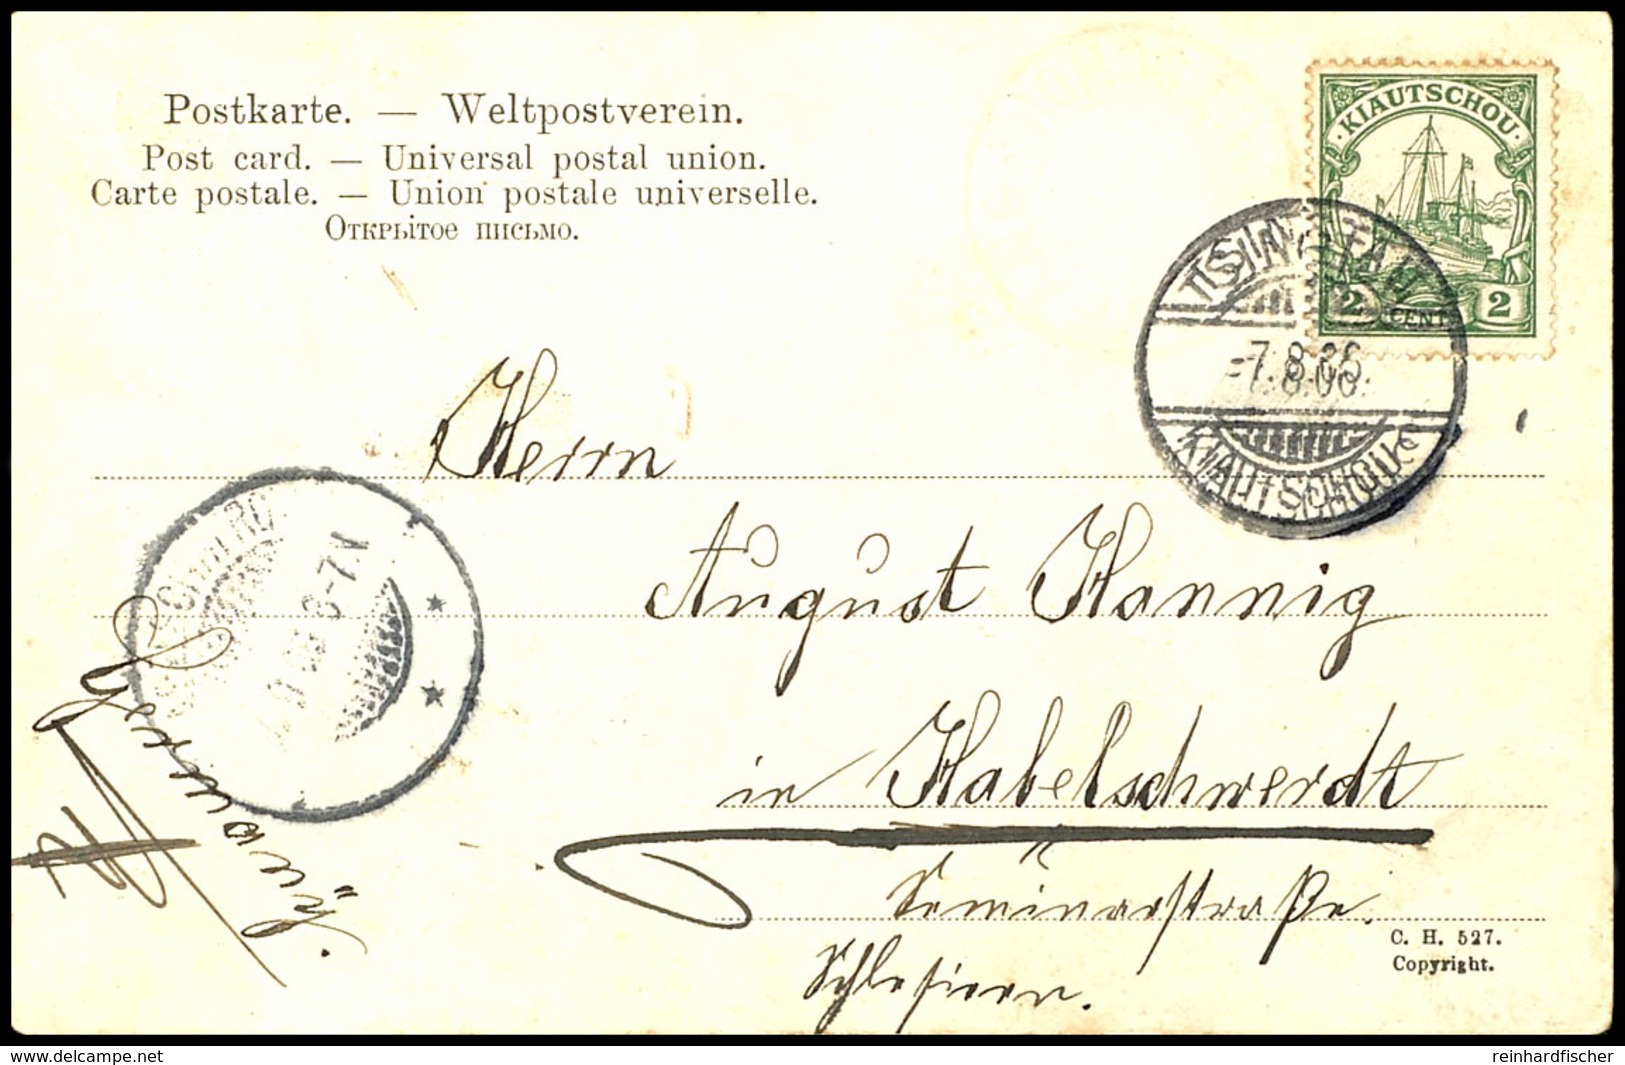 Postkarte. — Weltpostverein.
Post card. — Universal postal union.
Carte postale. — Union postale universelle.
Открытое письмо.
KIAUTSCHOU
2 CENT 2
TSINGTAU
-7.8.06.
KIAUTSCHOU
Herrn
August Hannig
in Habelschwerdt
Seminarstraße.
Schlesien.
8-7N
C. H. 527.
Copyright.
delcampe.net
reinhardfischer